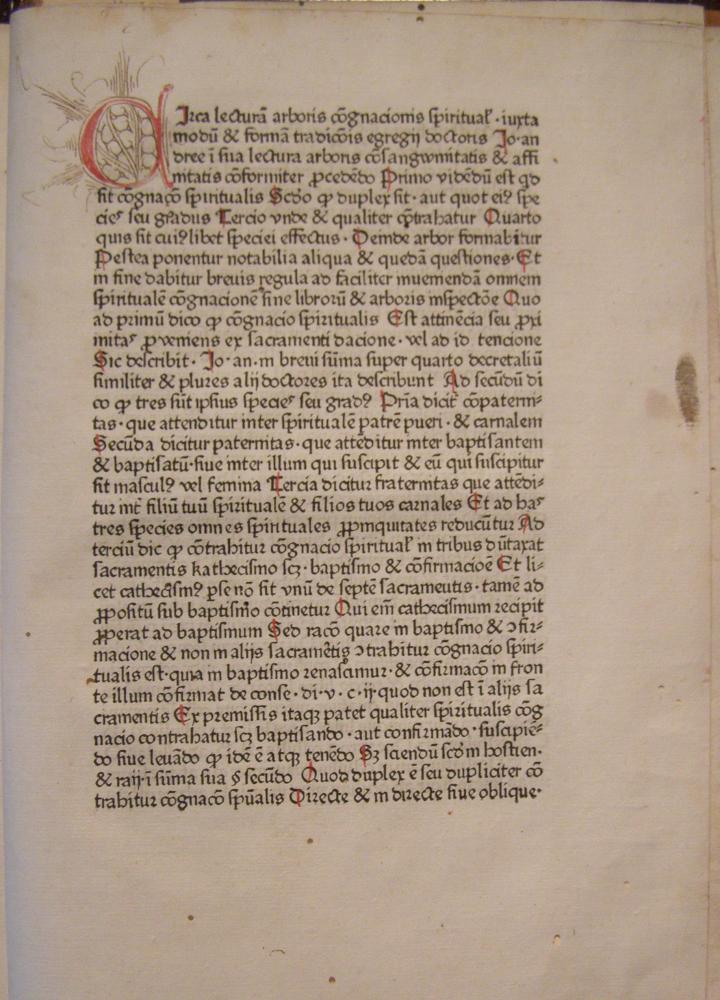 CIrca lecturā arboris cōgnacionis spiritual̕ · iuxta
modū & formā tradicōis egregij doctoris Jo · an
dree ī sua lectura arboris cōsangwinitatis & affi
nitatis cōformiter ꝓcedēdo Primo vidēdū est qd
sit cōgnacō spiritualis Scdo qꝫ duplex sit · aut quot eiꝰ spe
cies seu gradus Tercio vnde & qualiter cōtrahatur Quarto
quis sit cuiꝰlibet speciei effectus · Deinde arbor formabitur
Postea ponentur notabilia aliqua & quedā questiones · Et
in fine dabitur breuis regula ad faciliter inueniendā omnem
spiritualē cōgnacionē sine librorū & arboris inspectōe Quo
ad primū dico ꝙ cōgnacio spiritualis Est attinēcia seu ꝓxi
mitas ꝓveniens ex sacramenti dacione · vel ad id tencione
Sic describit · Jo · an · in breui sūma super quarto decretaliū
similiter & plures alij doctores ita describunt Ad secūdū di
co ꝙ tres sūt ipsius species seu gradꝰ Pria dicit̕ cōpaterni-
tas · que attenditur inter spiritualē patrē pueri · & carnalem
Secūda dicitur paternitas · que attēditur inter baptisantem
& baptisatū · siue inter illum qui suscipit & eū qui suscipitur
sit masculꝰ vel femina Tercia dicitur fraternitas que attēdi-
tur int̕ filiū tuū spiritualē & filios tuos carnales Et ad has
tres species omnes spirituales ꝓpinquitates reducūtur Ad
terciū dic ꝙ cōtrahitur cōgnacio spiritual̕ in tribus dūtaxat
sacramentis kathecismo scꝫ · baptismo & cōfirmacioē Et li-
cet cathecismꝰ ꝑse nō sit vnū de septē sacramentis · tamē ad
ꝓpositū sub baptismo cōtinetur Qui eīm cathecismum recipit
ꝓperat ad baptismum Sed racō quare in baptismo & ꝯfir-
macione & non in alijs sacramētis ꝯtrahitur cōgnacio spiri-
tualis est · quia in baptismo renascimur · & cōfirmacō in fron
te illum cōfirmat de conse · di · v · c · ij · quod non est ī alijs sa
cramentis Ex premissis itaqꝫ patet qualiter spiritualis cōg
nacio contrahatur scꝫ baptisando · aut confirmādo · suscipiē-
do siue leuādo ꝙ idē ē atqꝫ tenēdo Sꝫ sciendū scdm hostien ·
& raij · ī sūma sua § secūdo Quod duplex ē seu dupliciter cō
trahitur cōgnacō spūalis Directe & in directe siue oblique ·